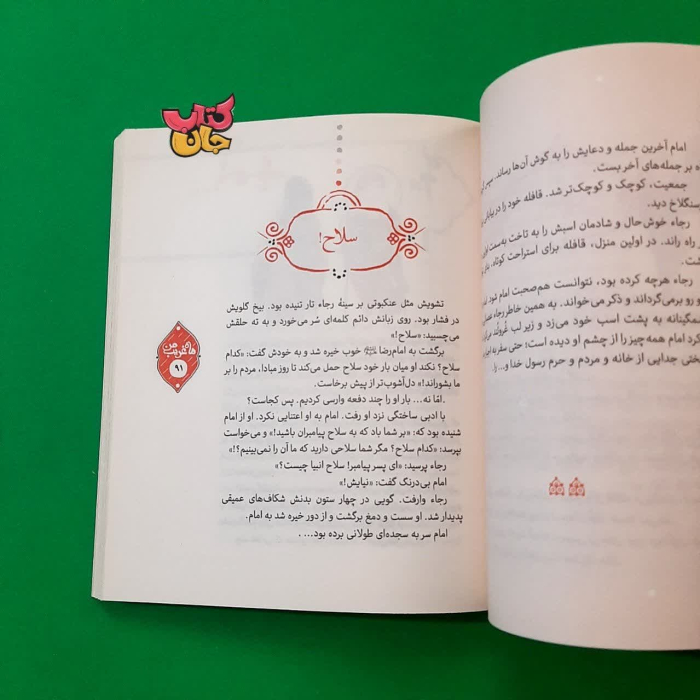 امام آخرین جمله و دعایش را به گوش آن‌ها رساند. سپس
ه بر جمله‌های آخر بست.
جمعیت، کوچک و کوچک‌تر شد. قافله خود را در بیابانی
سنگلاخ دید.
رجاء خوش‌حال و شادمان اسبش را به تاخت به سمت
راه راند. در اولین منزل، قافله برای استراحت کوتاه،
شت.
رجاء هرچه کرده بود، نتوانست هم‌صحبت امام شود.
و رو برمی‌گرداند و ذکر می‌خواند. به همین خاطر رجاء
مگینانه به پشت اسب خود می‌زد و زیر لب غُرولُند
کرد امام همه‌چیز را از چشم او دیده است؛ حتی سفر
ختی جدایی از خانه و مردم و حرم رسول خدا و...
کتاب
جان
سلاح!
تشویش مثل عنکبوتی بر سینهٔ رجاء تار تنیده بود. بیخ گلویش
در فشار بود. روی زبانش دائم کلمه‌ای سُر می‌خورد و به ته حلقش
می‌چسبید: «سلاح!»
برگشت به امام‌رضا خوب خیره شد و به خودش گفت: «کدام
سلاح؟ نکند او میان بار خود سلاح حمل می‌کند تا روز مبادا، مردم را بر
ما بشوراند!» دل‌آشوب‌تر از پیش برخاست.
.امّا نه... بار او را چند دفعه وارسی کردیم. پس کجاست؟
با ادبی ساختگی نزد او رفت. امام به او اعتنایی نکرد. او از امام
شنیده بود که: «بر شما باد که به سلاح پیامبران باشید!» و می‌خواست
بپرسد: «کدام سلاح؟ مگر شما سلاحی دارید که ما آن را نمی‌بینیم؟!»
رجاء پرسید: «ای پسر پیامبر! سلاح انبیا چیست؟»
امام بی‌درنگ گفت: «نیایش!»
رجاء وارفت. گویی در چهار ستون بدنش شکاف‌های عمیقی
پدیدار شد. او سست و دمغ برگشت و از دور خیره شد به امام.
امام سر به سجده‌ای طولانی برده بود... .
های غریب من
۹۱